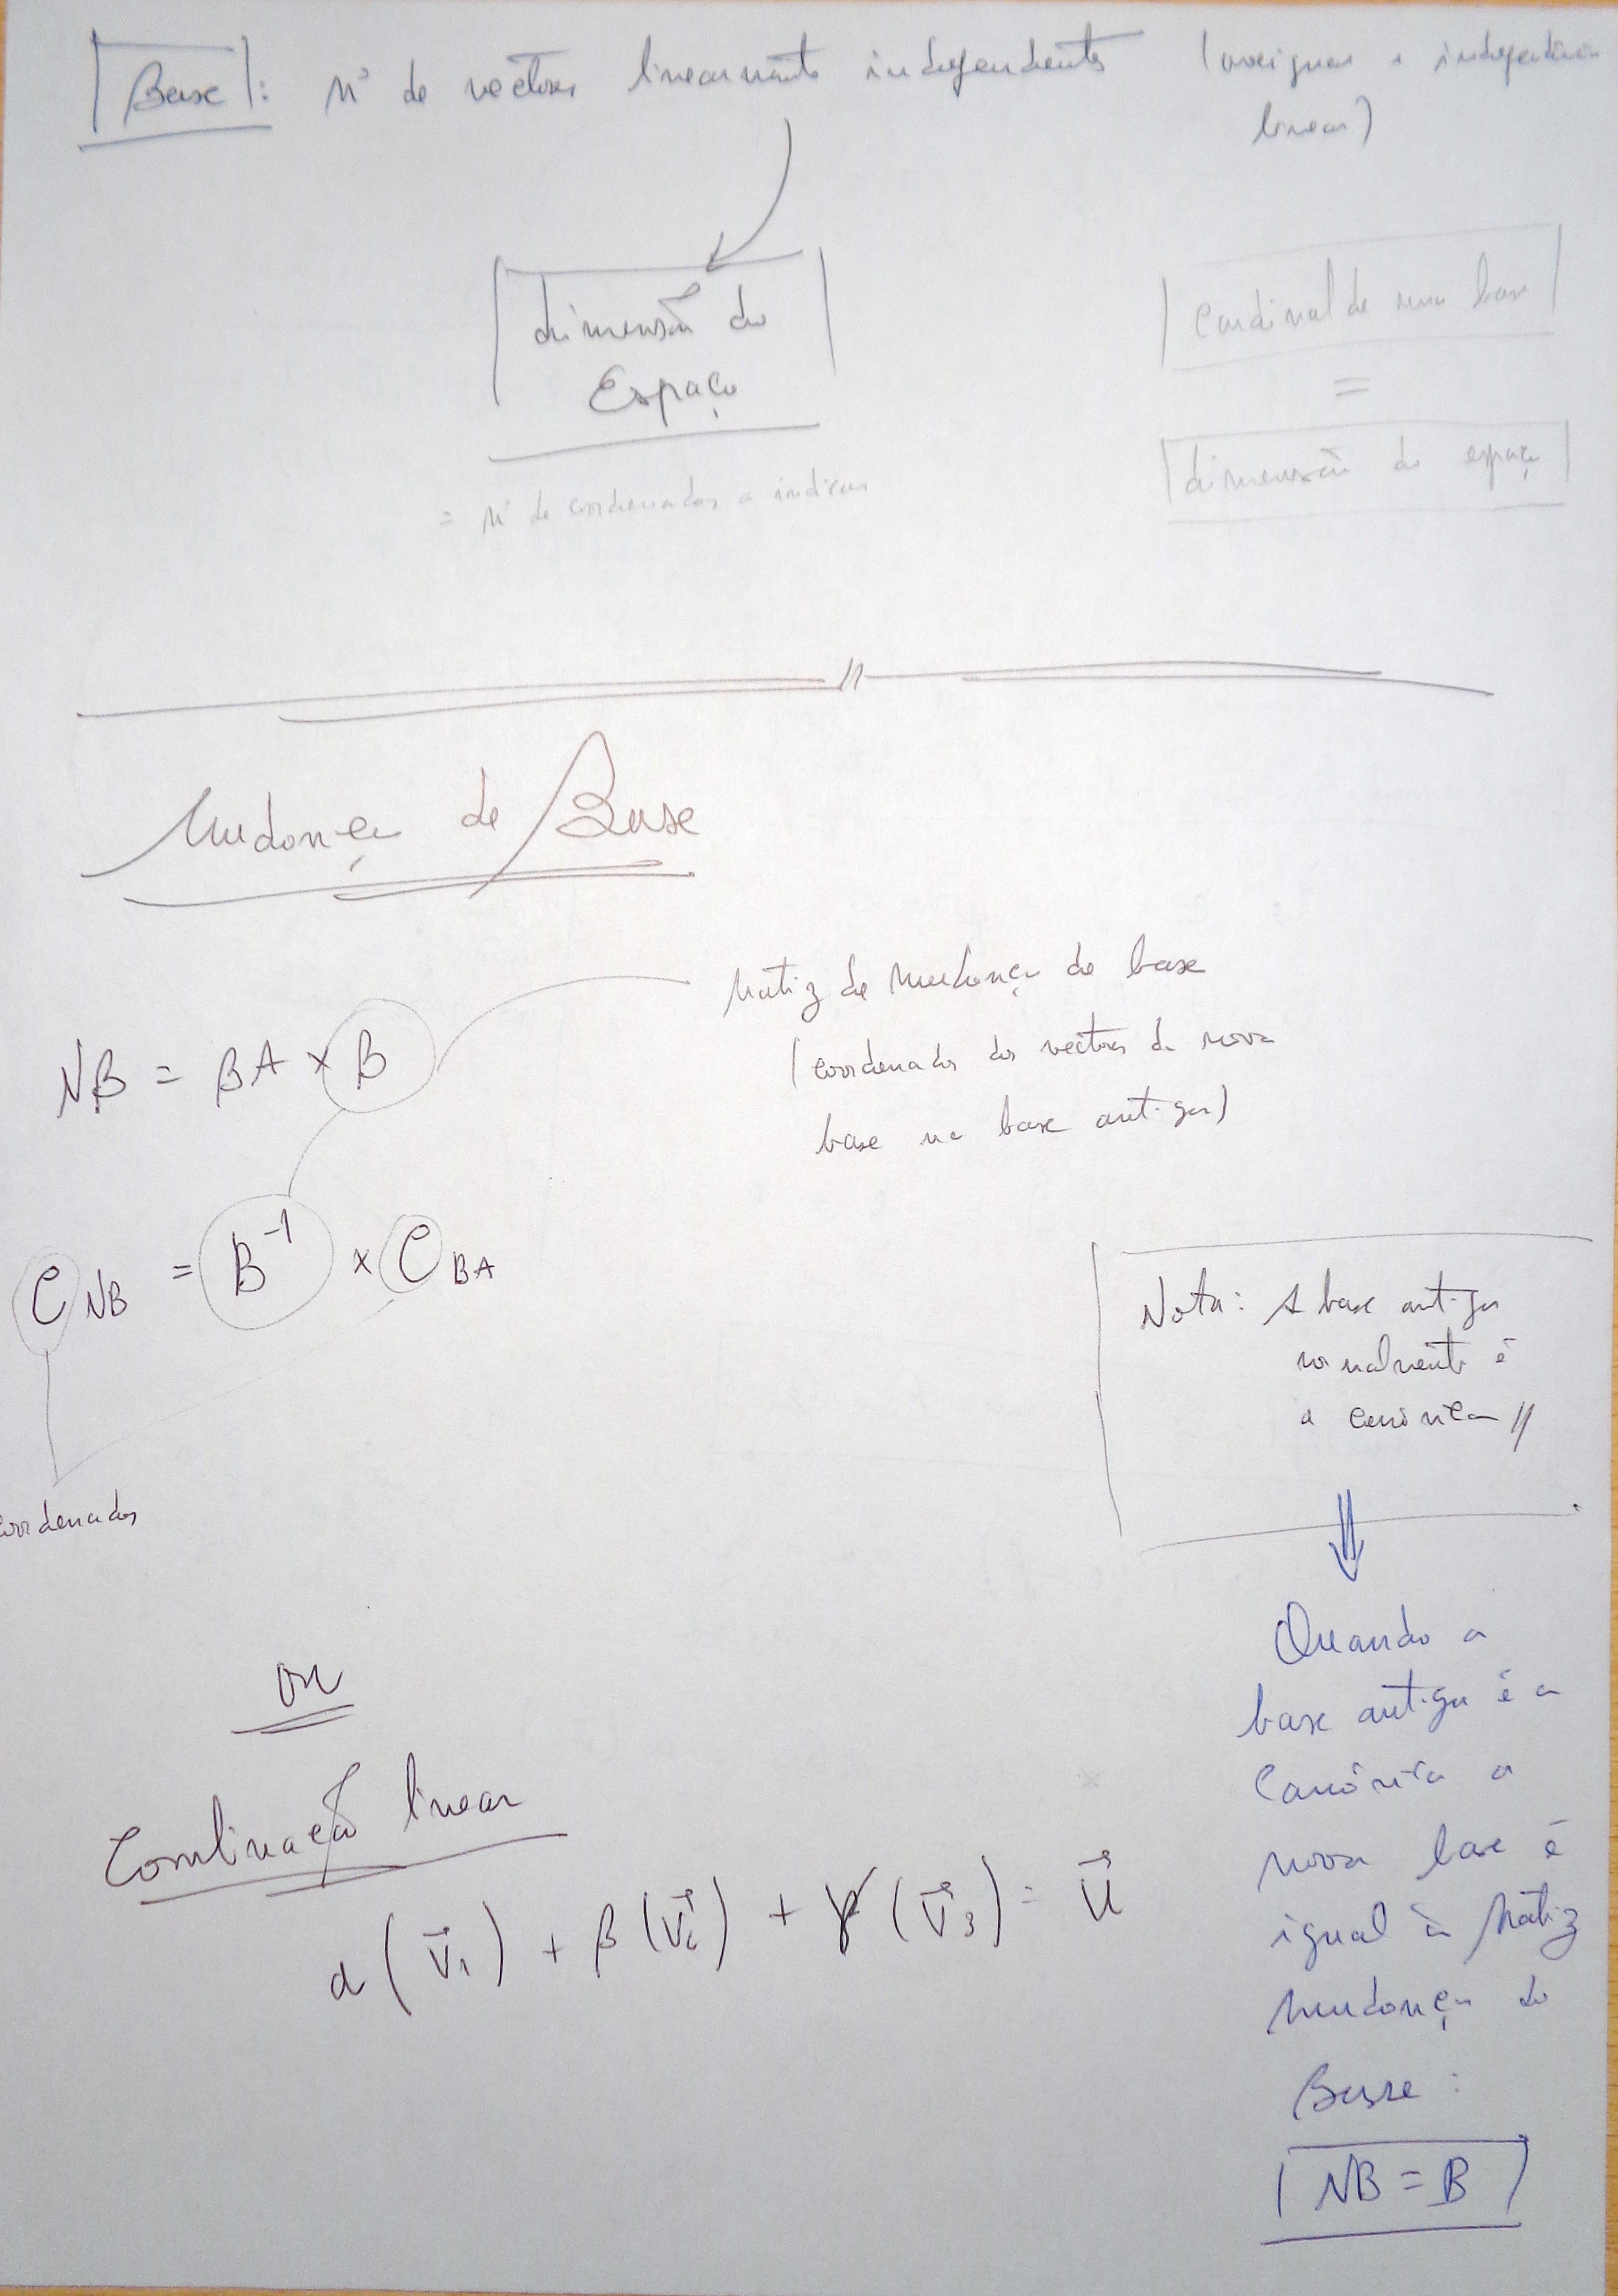 Base : nº de vectores linearmente independentes (averiguar a independência
linear)
dimensão do
Espaço
= nº de coordenadas a indicar
Cardinal de uma base
=
dimensão do espaço
Mudança de Base
NB = BA × B
Matriz de Mudança de base
(coordenadas dos vectores da nova
base na base antiga)
C NB = B⁻¹ × C BA
Coordenadas
Nota: A base antiga
normalmente é
a canónica //
Quando a
base antiga é a
Canónica a
nova base é
igual à Matriz
Mudança de
Base :
NB = B
ou
Combinação linear
α (v⃗₁) + β (v⃗₂) + γ (v⃗₃) = u⃗